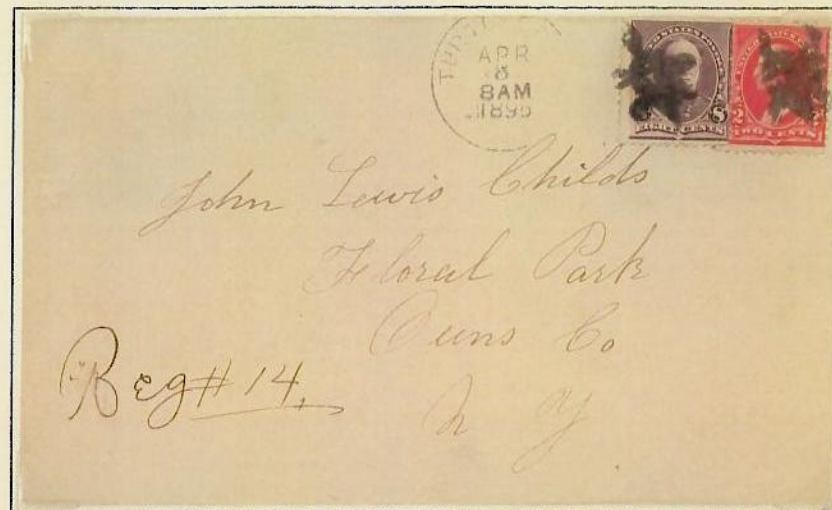 APR
8
8AM
1896
EIGHT CENTS
8
2
TWO CENTS
John Lewis Childs
Floral Park
Quns Co
N Y
Reg # 14.